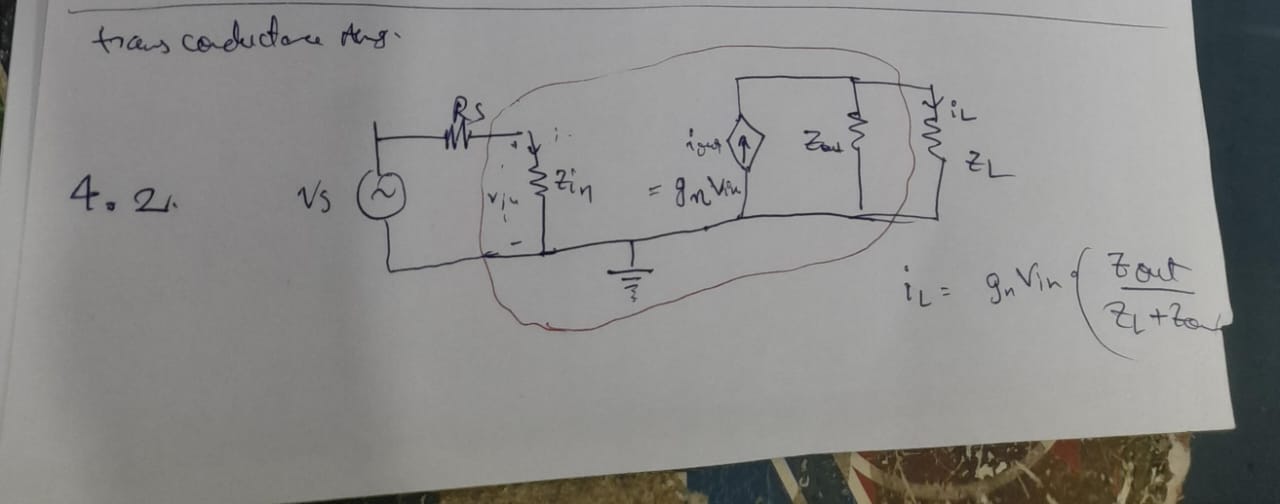 trans conductance Amp.
4.2.
Vs
Rs
+
i
Vin
-
Zin
iout
= gm Vin
Zout
iL
ZL
iL = gm Vin ( Zout / ZL + Zou